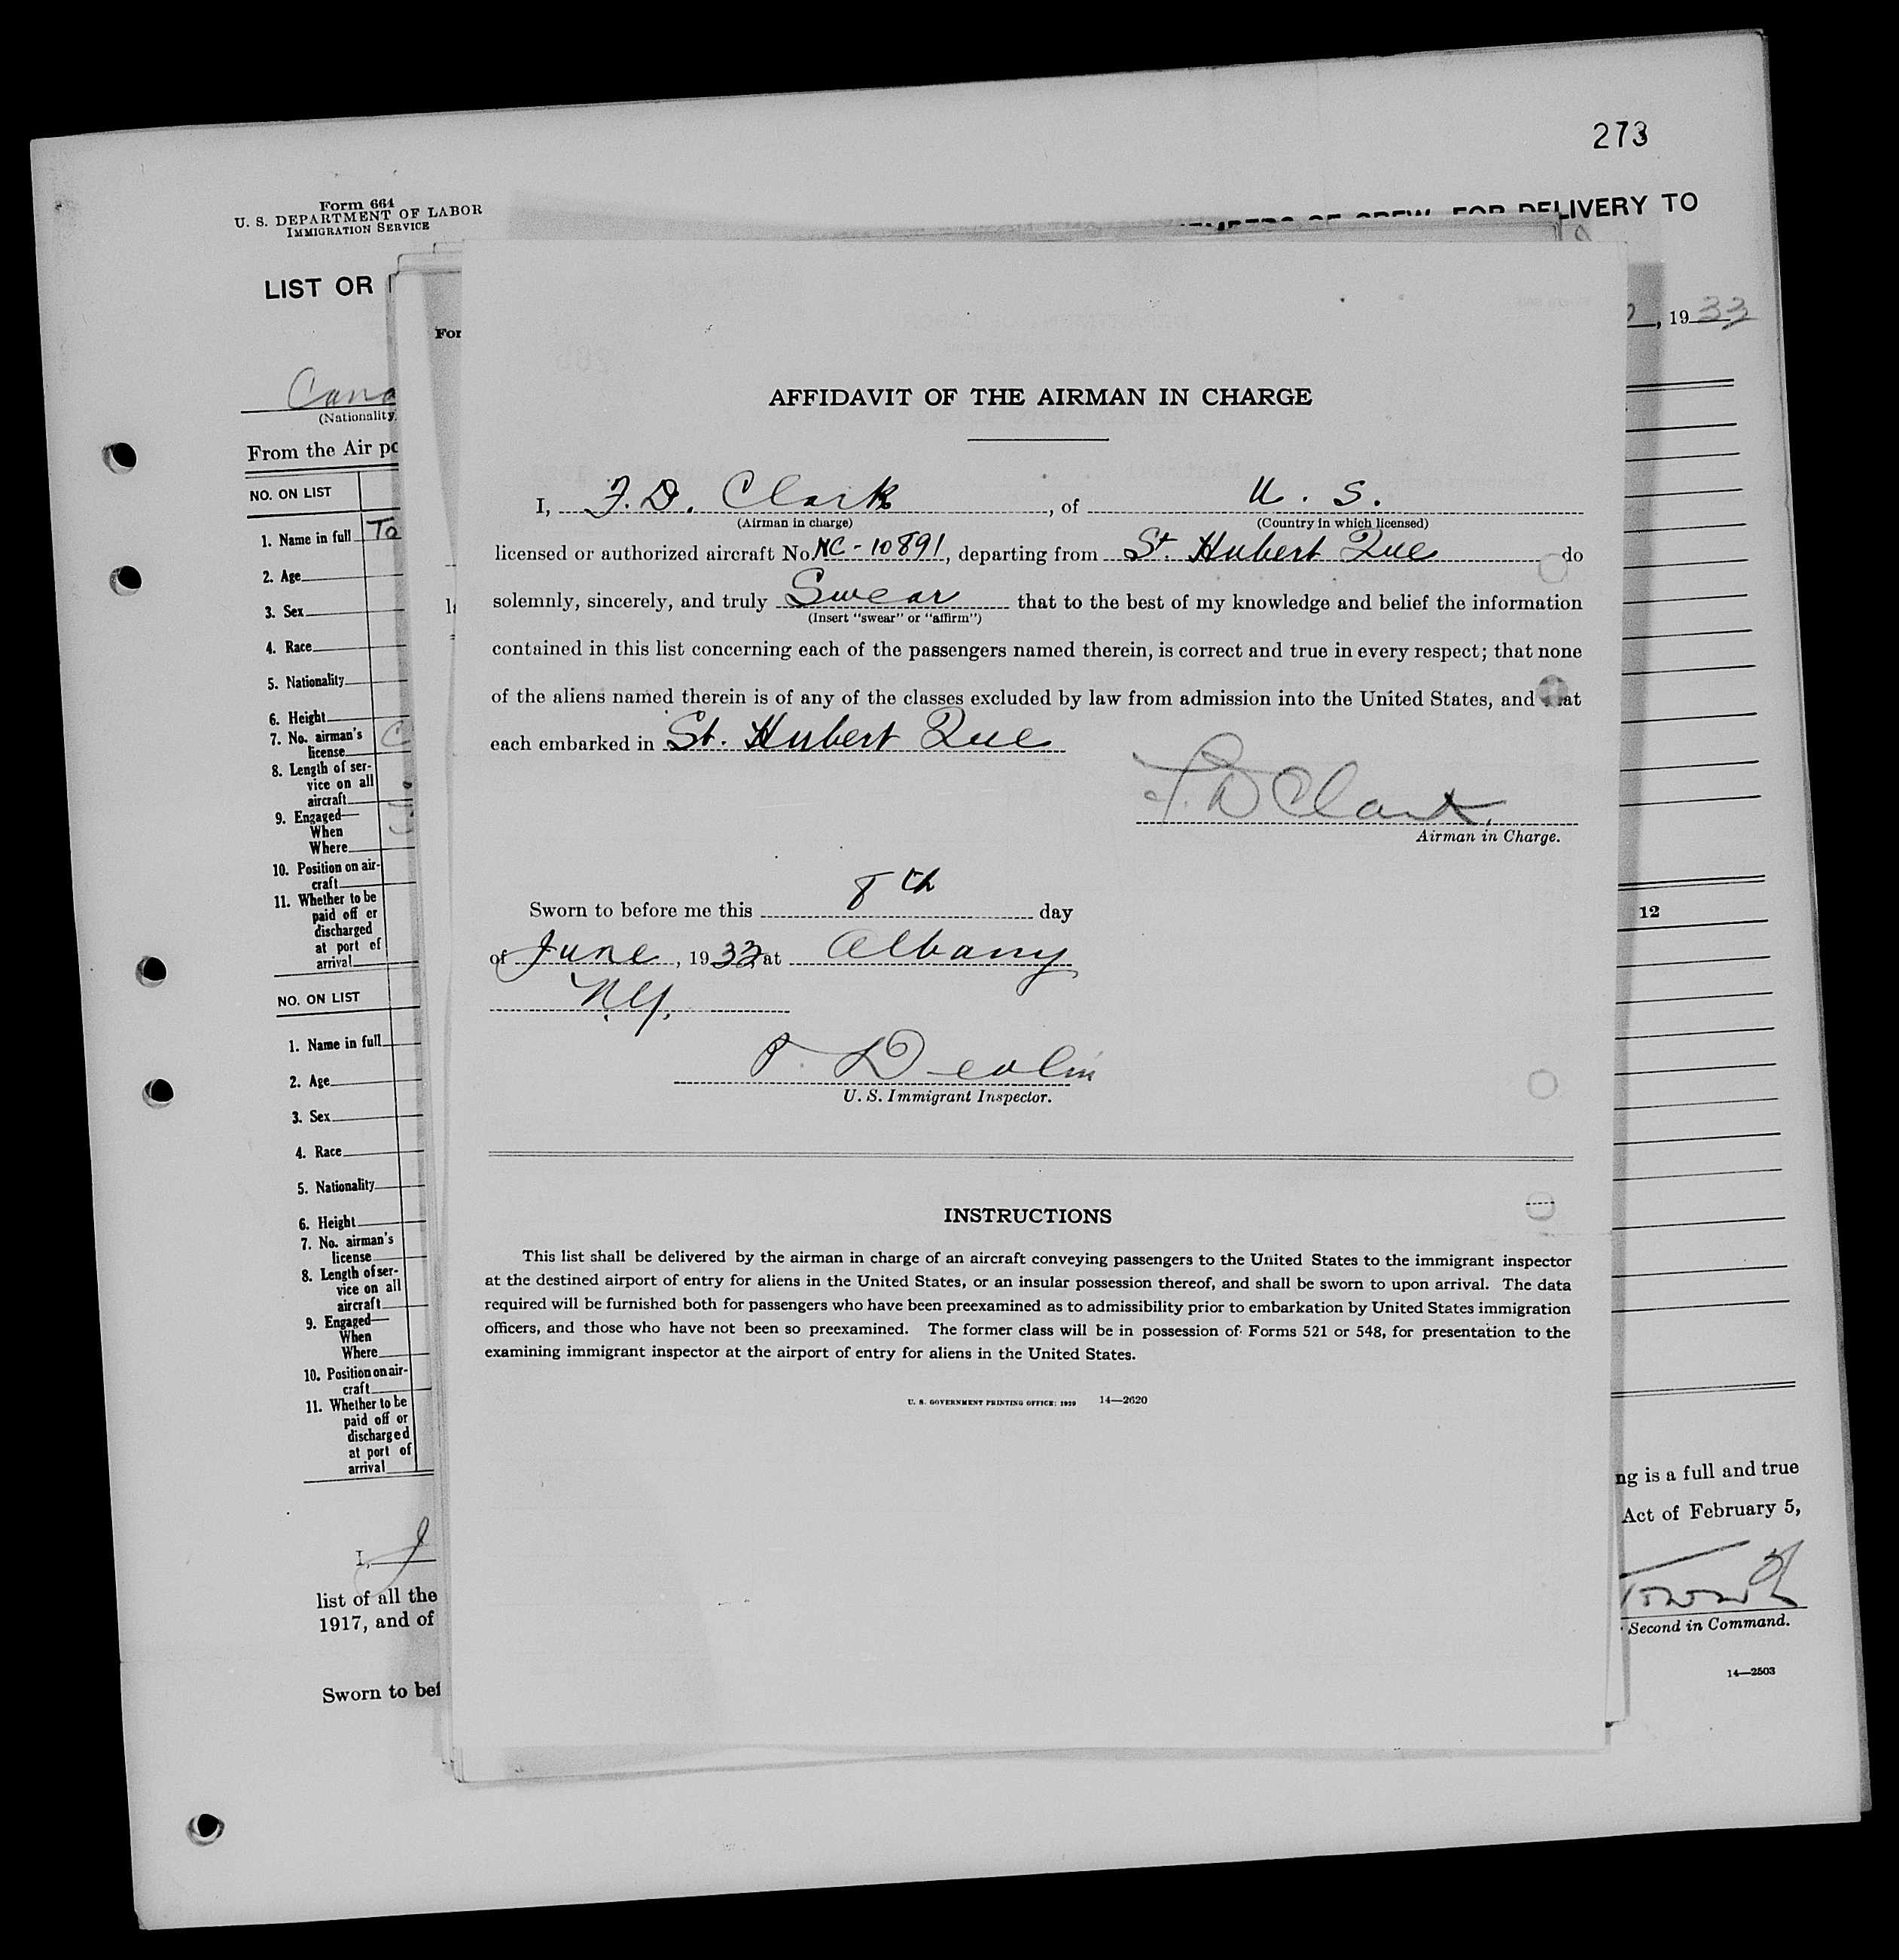 273
Form 664
U. S. DEPARTMENT OF LABOR
IMMIGRATION SERVICE
LIVERY TO
LIST OR
For
, 1933
Cana
(Nationality
From the Air po
NO. ON LIST
1. Name in full To
2. Age
3. Sex
4. Race
5. Nationality
6. Height
7. No. airman's
license
8. Length of ser-
vice on all
aircraft
9. Engaged—
When
Where
10. Position on air-
craft
11. Whether to be
paid off or
discharged
at port of
arrival
NO. ON LIST
1. Name in full
2. Age
3. Sex
4. Race
5. Nationality
6. Height
7. No. airman's
license
8. Length of ser-
vice on all
aircraft
9. Engaged—
When
Where
10. Position on air-
craft
11. Whether to be
paid off or
discharged
at port of
arrival
I, J
list of all the
1917, and of
Sworn to bef
AFFIDAVIT OF THE AIRMAN IN CHARGE
I, F. D. Clark, of U. S.
(Airman in charge) (Country in which licensed)
licensed or authorized aircraft No. NC-10891, departing from St. Hubert Que do
solemnly, sincerely, and truly Swear that to the best of my knowledge and belief the information
(Insert "swear" or "affirm")
contained in this list concerning each of the passengers named therein, is correct and true in every respect; that none
of the aliens named therein is of any of the classes excluded by law from admission into the United States, and that
each embarked in St. Hubert Que
F. D Clark
Airman in Charge.
Sworn to before me this 8th day
of June, 1933, at Albany
N.Y.
P. Devlin
U. S. Immigrant Inspector.
INSTRUCTIONS
This list shall be delivered by the airman in charge of an aircraft conveying passengers to the United States to the immigrant inspector
at the destined airport of entry for aliens in the United States, or an insular possession thereof, and shall be sworn to upon arrival. The data
required will be furnished both for passengers who have been preexamined as to admissibility prior to embarkation by United States immigration
officers, and those who have not been so preexamined. The former class will be in possession of Forms 521 or 548, for presentation to the
examining immigrant inspector at the airport of entry for aliens in the United States.
U. S. GOVERNMENT PRINTING OFFICE: 1929 14—2620
12
ng is a full and true
Act of February 5,
Second in Command.
14—2503